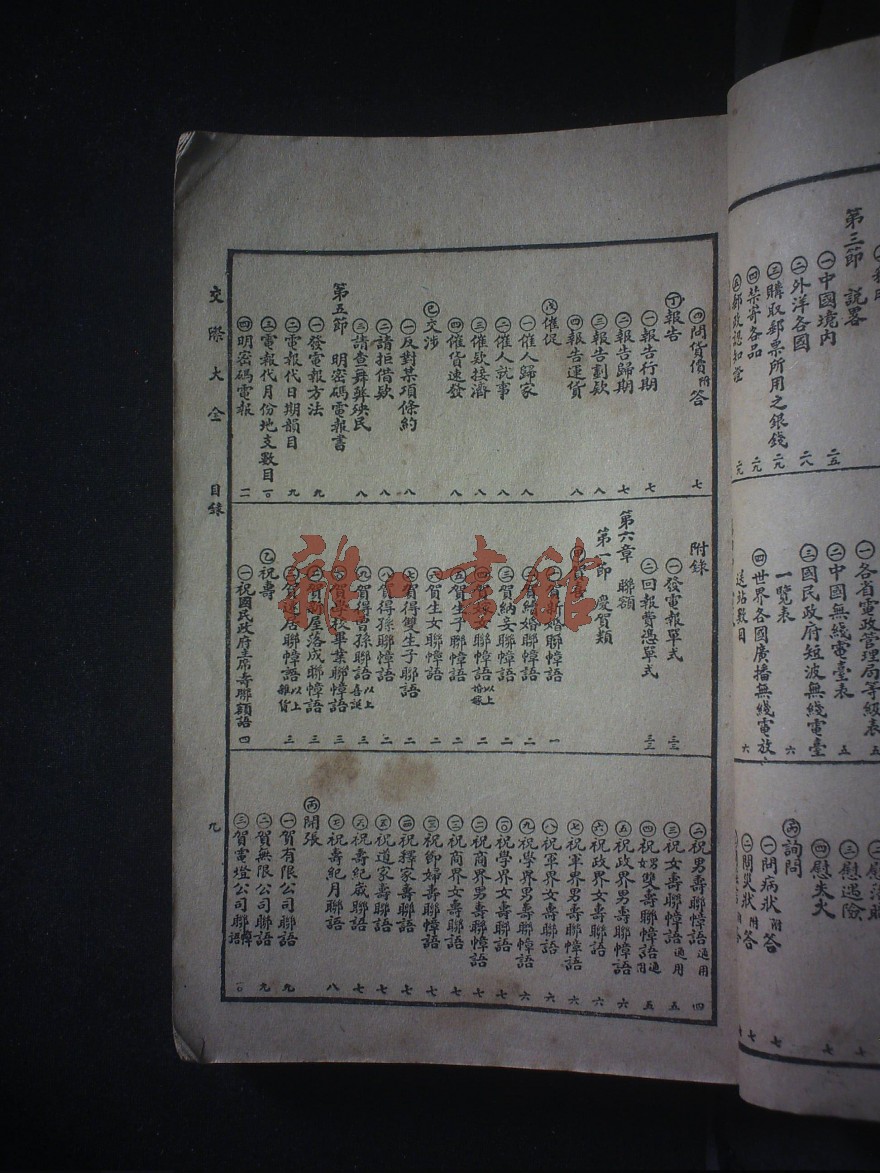 第三節 說畧
㊀中國境內 二五
㊁外洋各國 二八
㊂購取郵票所用之銀錢 二九
㊃禁寄各品 二九
㊀各省電政管理局等級表 五
㊁中國無綫電臺表 五
㊂國民政府短波無綫電臺
一覽表 六
㊃世界各國廣播無綫電放
送站數目 六
㊂慰遇險 七
㊃慰失火 七
㊅詢問
㊀問病狀附答 七
㊁問災狀附答 七
㊃問貨價附答 七
㊉報告
㊀報告行期 七
㊁報告歸期 七
㊂報告劃欵 八
㊃報告運貨 八
㊉催促
㊀催人歸家 八
㊁催人就事 八
㊂催欵接濟 八
㊃催貨速發 八
㊉交涉
㊀反對某項條約 八
㊁請拒借欵 八
㊂請查舞弊殃民 八
第五節 明密碼電報書
㊀發電報方法 九
㊁電報代日期韻目 九
㊂電報代月份地支數目 一〇
㊃明密碼電報 一一
附錄
㊀發電報單式 三三
㊁回報費憑單式 三三
第六章 聯額
第一節 慶賀類
㊀賀新婚聯幛語 一
㊁賀續婚聯幛語 二
㊂賀納妾聯幛語 二
㊃賀嫁女聯幛語以上婚嫁 二
㊄賀生子聯幛語 二
㊅賀生女聯幛語 二
㊆賀得雙生子聯語 二
㊇賀得孫聯幛語 二
㊈賀得曾孫聯語以上喜誕 三
賀學校畢業聯幛語 三
賀新屋落成聯幛語 三
賀遷居聯幛語以上雜賀 三
㊁祝壽
㊀祝國民政府主席壽聯額語 四
㊁祝男壽聯幛語通用 四
㊂祝女壽聯幛語通用 五
㊃祝男女雙壽聯幛語通用 五
㊄祝政界男壽聯幛語 六
㊅祝政界女壽聯語 六
㊆祝軍界男壽聯幛語 六
㊇祝軍界女壽聯語 六
㊈祝學界男壽聯幛語 六
祝學界女壽聯語 七
祝商界男壽聯幛語 七
祝商界女壽聯語 七
祝節婦壽聯幛語 七
祝釋家壽聯語 七
祝道家壽聯語 七
祝壽紀歲聯語 七
祝壽紀月聯語 八
㊅開張
㊀賀有限公司聯語 九
㊁賀無限公司聯語 九
㊂賀電燈公司聯幛語 一〇
交際大全 目錄 九